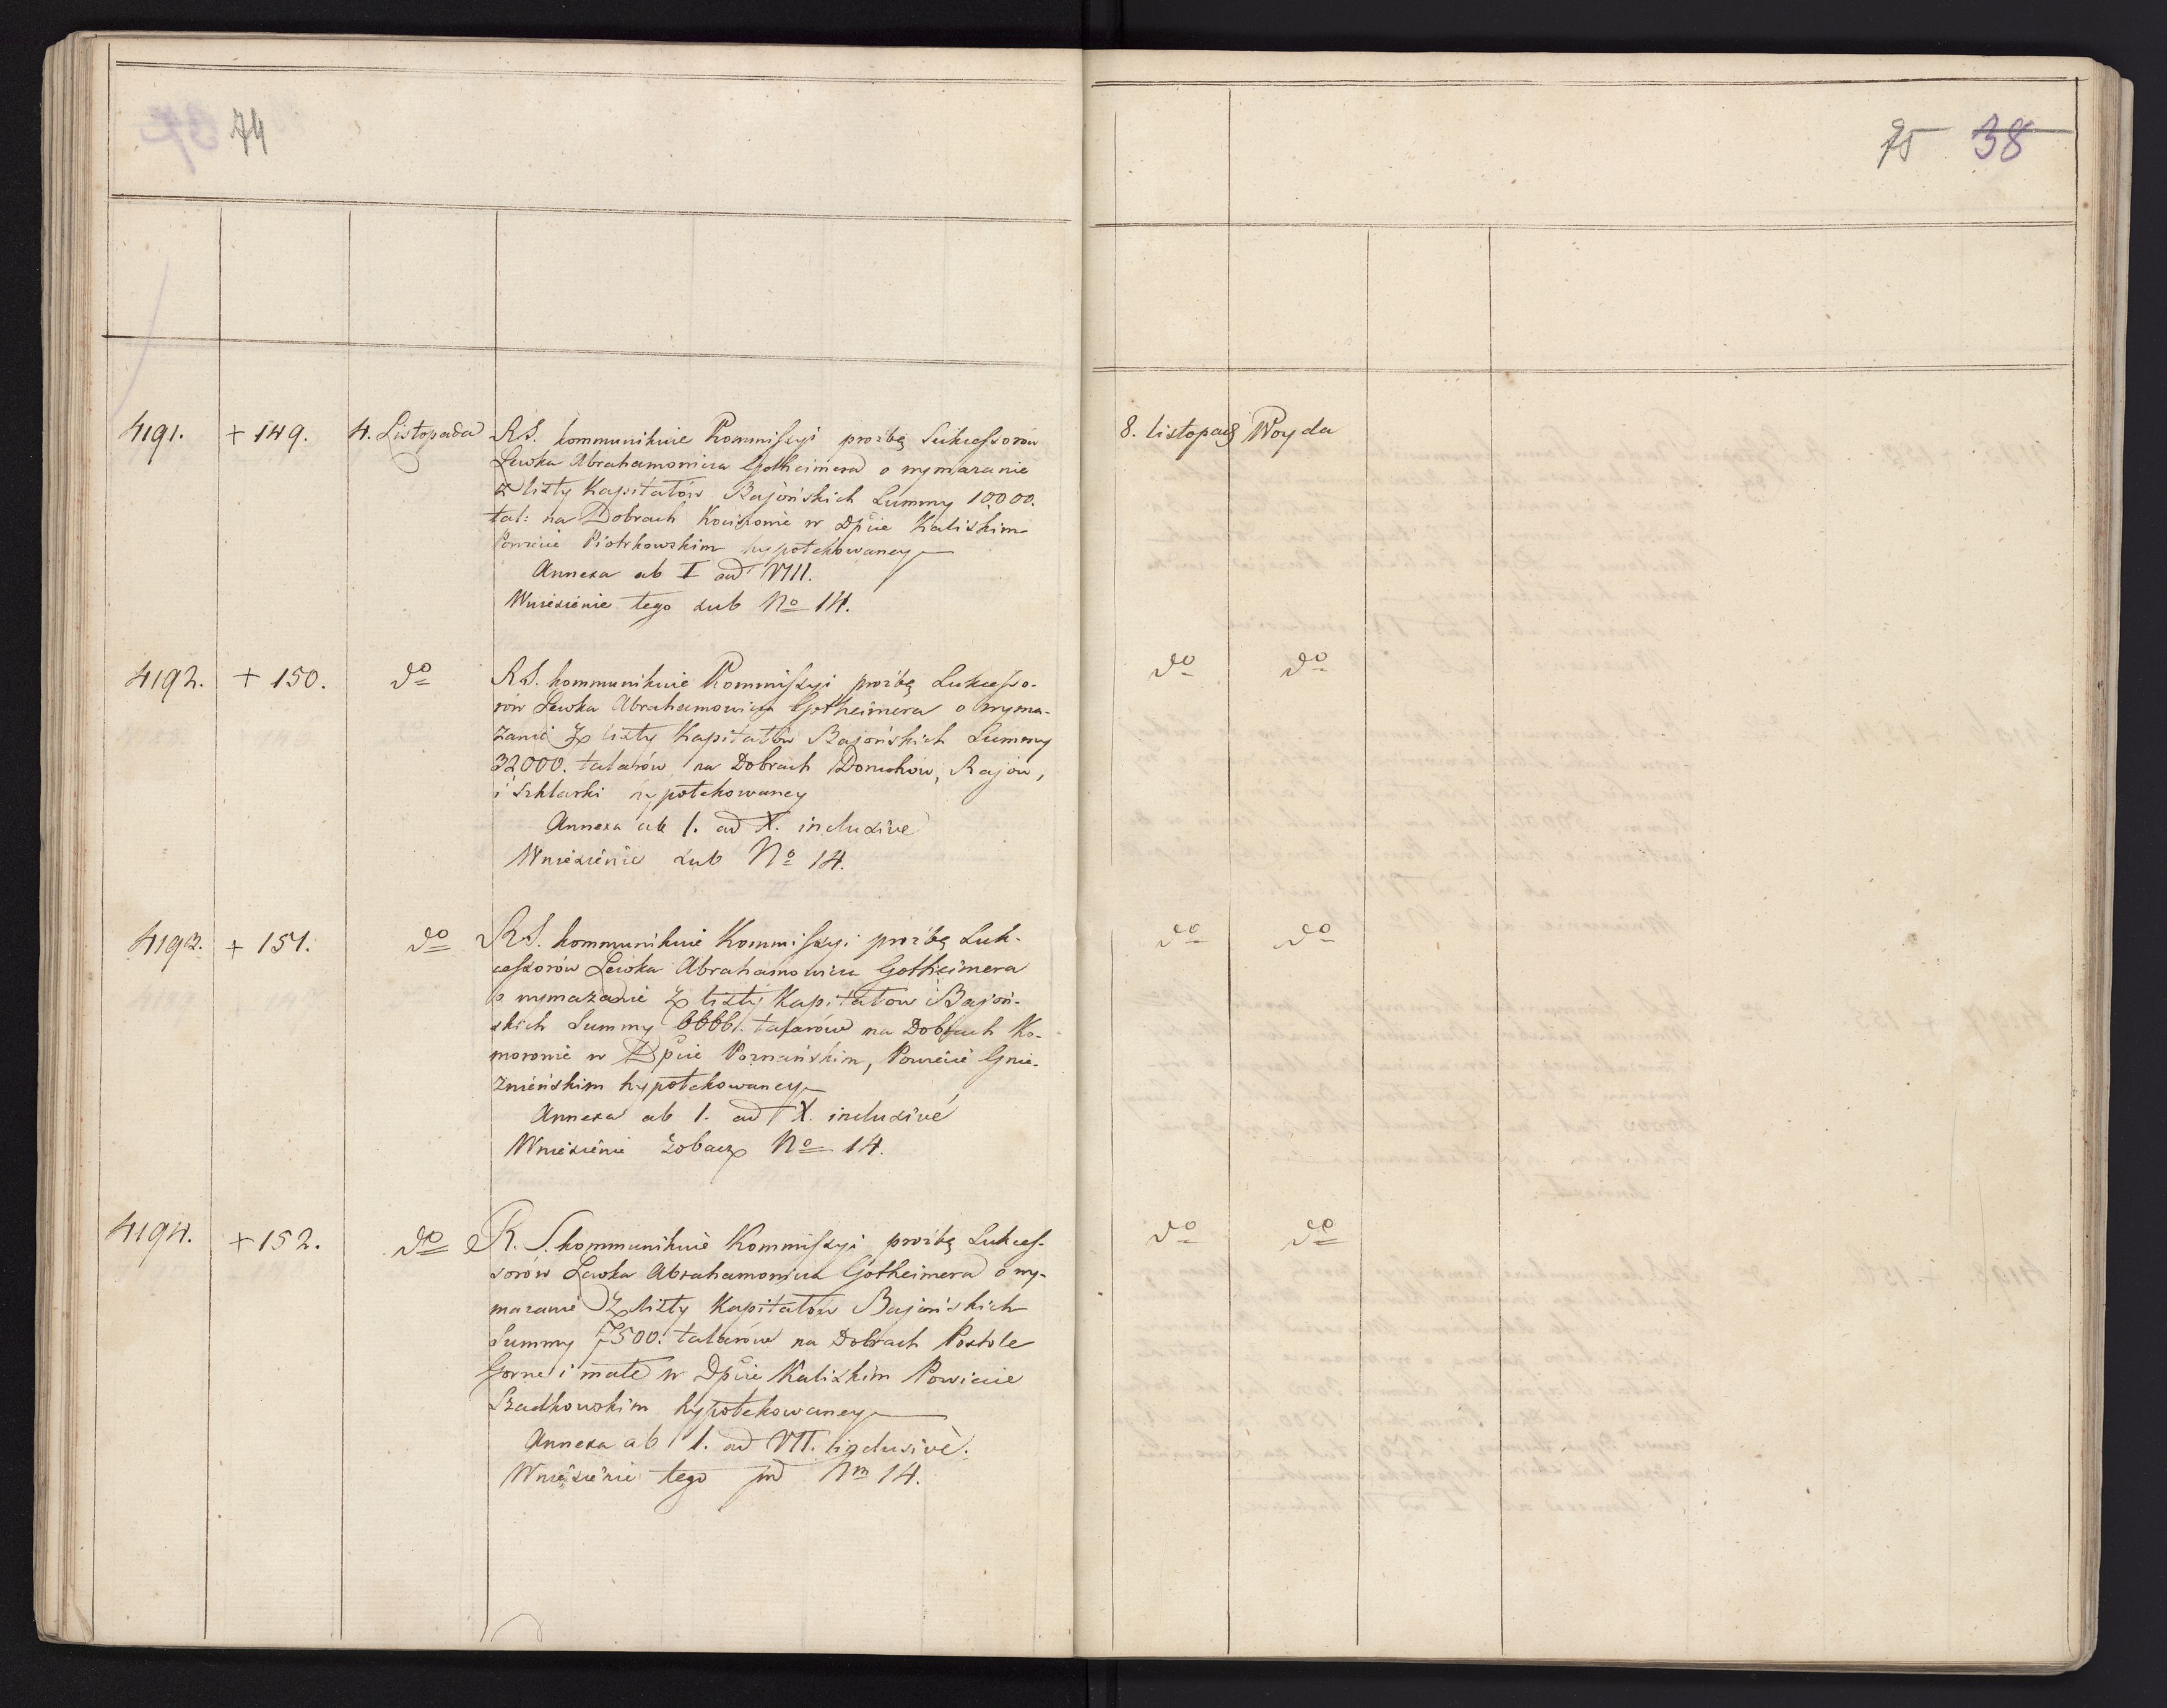 74
75 38
4191. + 149. 4. Listopada RS. kommunikuie Kommissyi proźbę Sukcessorów
Lewka Abrahamowicza Gotheimera o wymazanie
z listy Kapitałów Bajońskich Summy 10,000.
tal: na Dobrach w Dpcie Kaliskim
Powiecie Piotrkowskim hypotekowaney
Annexa ab I ad VIII.
Wniesienie tego sub No 14.
8. listopad Woyda
4192. + 150. do RS. kommunikuie Kommissyi proźbę Sukcesso-
rów Lewka Abrahamowicza Gotheimera o wyma-
zanie z listy Kapitałów Bajońskich Summy
32000. talarów na Dobrach Doruchów, Rajów,
i Szklarki hypotekowaney
Annexa ab 1. ad X. inclusive
Wniesienie sub No 14.
do do
4193. + 151. do RS. kommunikuie Kommissyi proźbę Suk-
cessorów Lewka Abrahamowicza Gotheimera
o wymazanie z listy Kapitałów Bajoń-
skich Summy 6666. talarów na Dobrach Ko-
morowie w Dpcie Poznańskim, Powiecie Gnie-
znieńskim hypotekowaney
Annexa ab 1. ad X. inclusivé
Wniesienie zobacz No 14.
do do
4194. + 152. do R. S. kommunikuie Kommissyi proźbę Sukces-
sorów Lewka Abrahamowicza Gotheimera o wy-
mazanie z listy Kapitałów Bajońskich
Summy 7500. talarów na Dobrach Rostole
Gorne i małe w Dpcie Kaliskim Powiecie
Szadkowskim hypotekowaney
Annexa ab 1. ad VII. inclusivè.
Wniesienie tego pod Nm 14.
do do